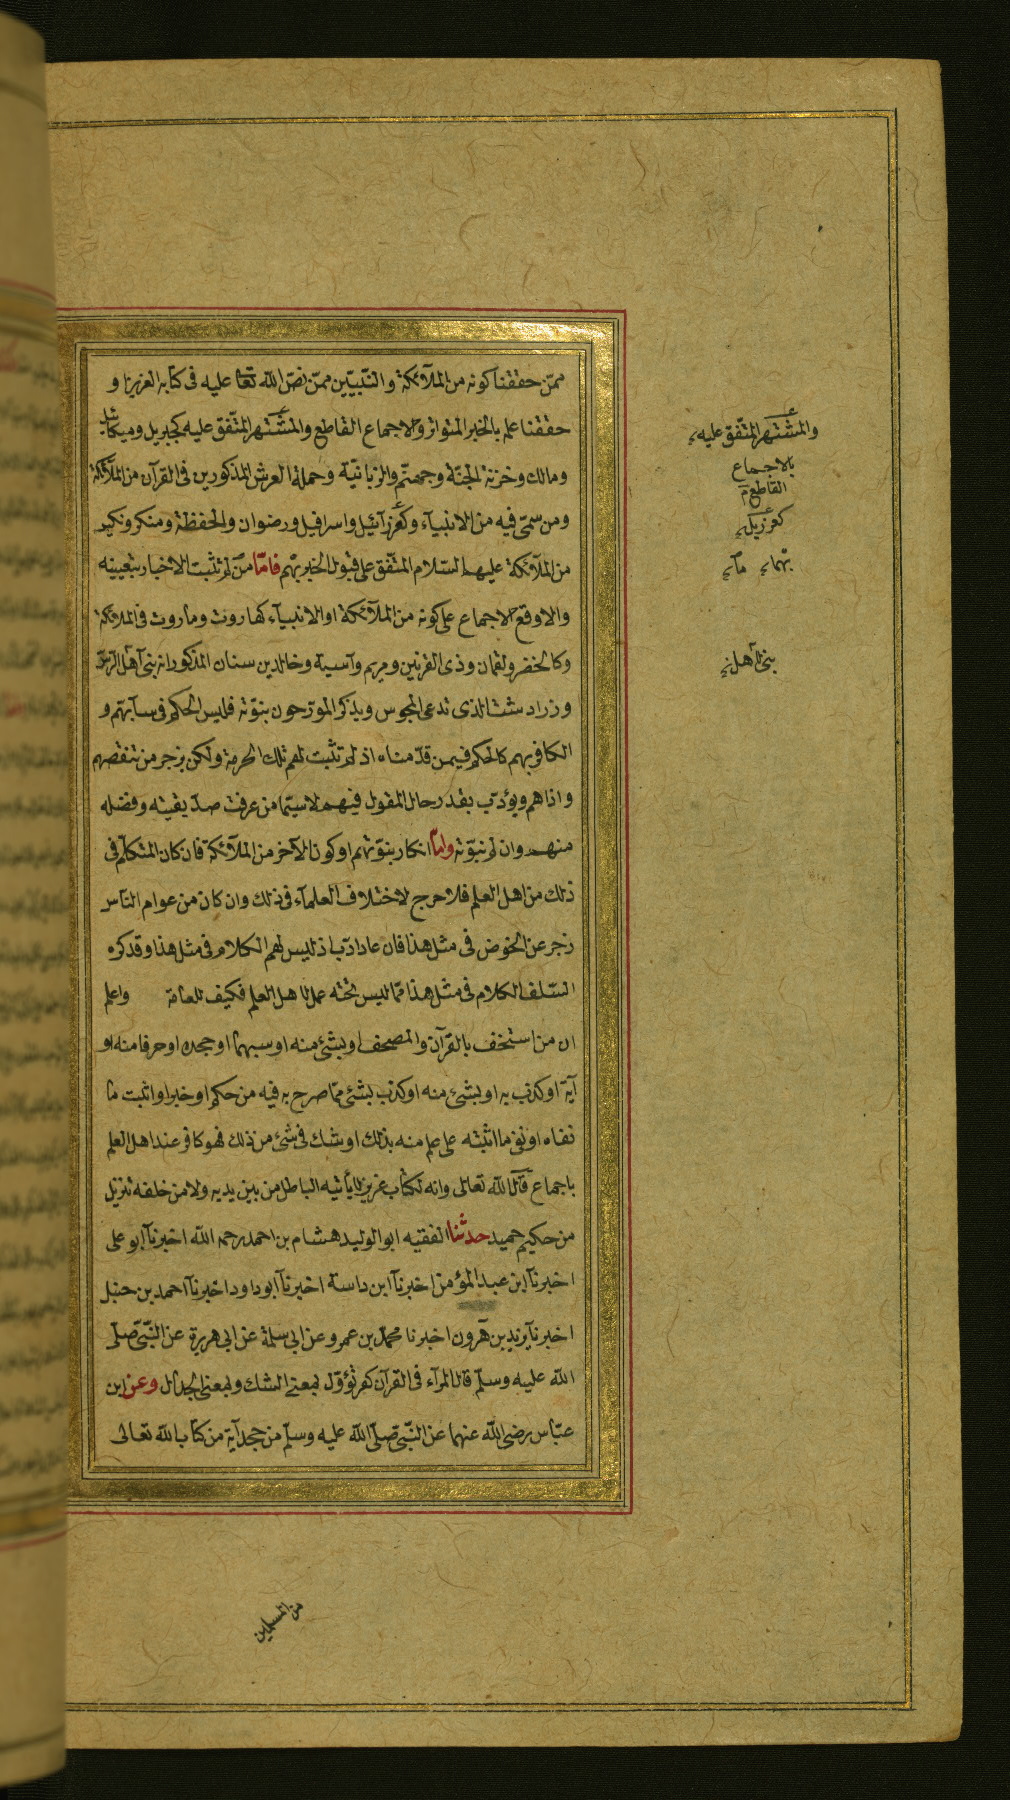 ممّن حققنا كونه من الملآئكة والنّبيّين ممّن نصّ اللّه تعا عليه فى كتابه العزيز او
حققنا علم بالخبر المتواتر والاجماع القاطع والمشتهر المتّفق عليه كجبريل وميكائيل
ومالك وخزنة الجنّة وجهنّم والزبانيّة وحملة العرش المذكورين فى القرآن من الملآئكة
ومن سمّى فيه من الانبيآء وكعزرآئيل واسرافيل ورضوان والحفظة ومنكر ونكير
من الملآئكة عليهم السّلام المتّفق على قبول الخبر بهم فامّا من لم تثبت الاخبار بتعيينه
والا وقع الاجماع على كونه من الملآئكة او الانبيآء كهاروت وماروت فى الملآئكة
وكالخضر ولقمان وذى القرنين ومريم وآسية وخالد بن سنان المذكور انه نبى آهل الرسّ
وزرادشت الذى تدعى المجوس ويذكر المورّخون بنبوّته فليس الحكم فى سآبهم و
الكافر بهم كالحكم فيمن قدّمناه اذ لم تثبت لهم تلك الحرمة ولكن يزجر من تنقصهم
واذاهم ويؤدّب بقدر حال المقول فيهم لاسيّما من عرفت صدّيقيته وفضله
منهم وان لم نبوّته وامّا انكار بنوّتهم او كون الآخر من الملآئكة فان كان المتكلّم فى
ذلك من اهل العلم فلا حرج لاختلاف العلمآء فى ذلك وان كان من عوام النّاس
زجر عن الخوض فى مثل هذا فان عاد ادّب اذ ليس لهم الكلام فى مثل هذا وقد كره
السّلف الكلام فى مثل هذا ممّا ليس تحته عمل لاهل العلم فكيف للعامة واعلم
ان من استخف بالقرآن والمصحف او بشئ منه او سبهما او جحده او حرفا منه او
آية او كذب به او بشئ منه او كذب بشئ ممّا صرح به فيه من حكم او خبر او اثبت ما
نفاه او نفى ما اثبته على علم منه بذلك او شك فى شئ من ذلك فهو كافر عند اهل العلم
باجماع قآل اللّه تعالى وانه لكتاب عزيز لا يأتيه الباطل من بين يديه ولا من خلفه تنزيل
من حكيم حميد حدثنا الفقيه ابو الوليد هشام بن احمد رحمه اللّه اخبرنآ ابو على
اخبرنآ ابن عبد المؤمن اخبرنآ ابن داسة اخبرنآ ابو داود اخبرنآ احمد بن حنبل
اخبرنآ يزيد بن هرون اخبرنا محمّد بن عمرو عن ابى سلمة عن ابى هريرة عن النّبىّ صلّى
اللّه عليه وسلّم قال المرآء فى القرآن كفر تؤوّل بمعنى الشك وبمعنى الجدال وعن ابن
عبّاس رضى اللّه عنهما عن النّبىّ صلّى اللّه عليه وسلّم من جحد آية من كتاب اللّه تعالى
والمشتهر المتّفق عليه
بالاجماع
القاطع
كعزريل
بهما
نبى لاهل
من المسلمين